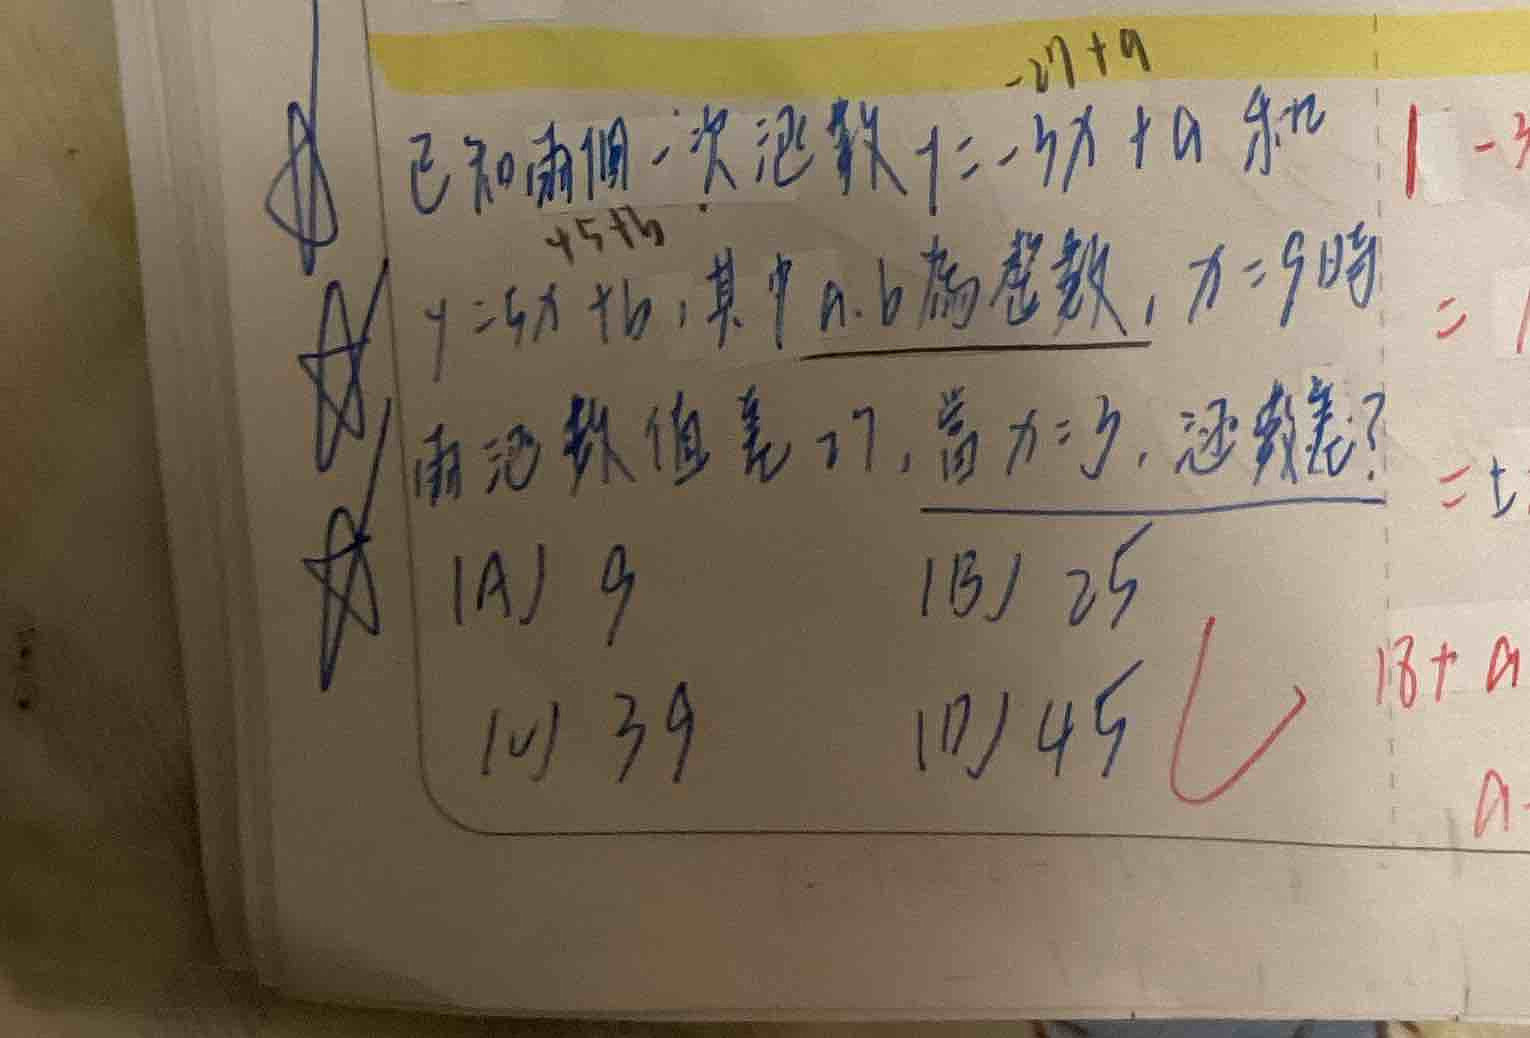 -27+a
已知兩個一次函數y=-3x+a和
45+b
y=5x+b,其中a.b為整數,x=9時
兩函數值差27,當x=3,函數差?
(A) 9 (B) 25
(C) 39 (D) 45
| -3
=
= ±
18+a
a-